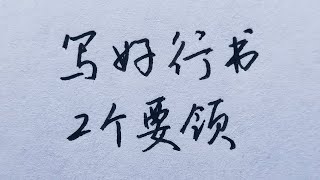 写好行书
2个要领